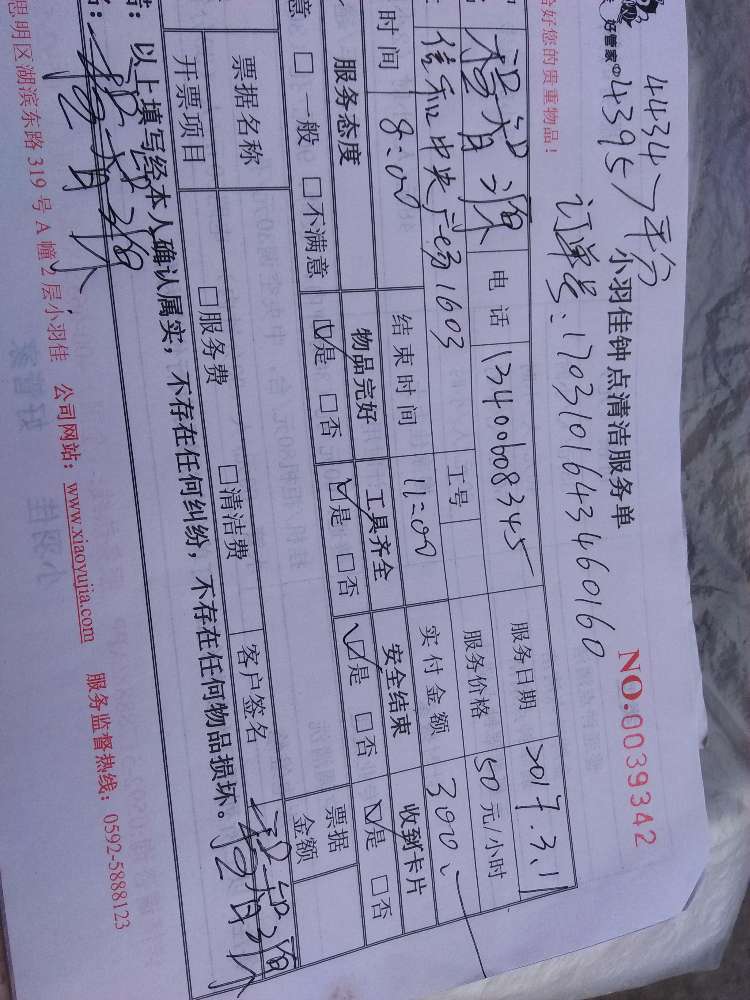 好管家中心
4434
4395 > 平分
小羽佳钟点清洁服务单
NO.0039342
好您的贵重物品！
订单号：17031016434 60160
电话 13400608345 服务日期 2017.3.11
信和中央广场1603 工号 服务价格 50元/小时
时间 8:00 结束时间 11:00 实付金额 300
服务态度 物品完好 工具齐全 安全结束 收到卡片
意 □一般 □不满意 ☑是 □否 ☑是 □否 ☑是 □否 ☑是 □否
票据名称 票据金额
开票项目 □服务费 □清洁费 客户签名
：以上填写经本人确认属实，不存在任何纠纷，不存在任何物品损坏。
思明区湖滨东路319号A幢2层小羽佳 公司网站：www.xiaoyujia.com 服务监督热线：0592-5888123